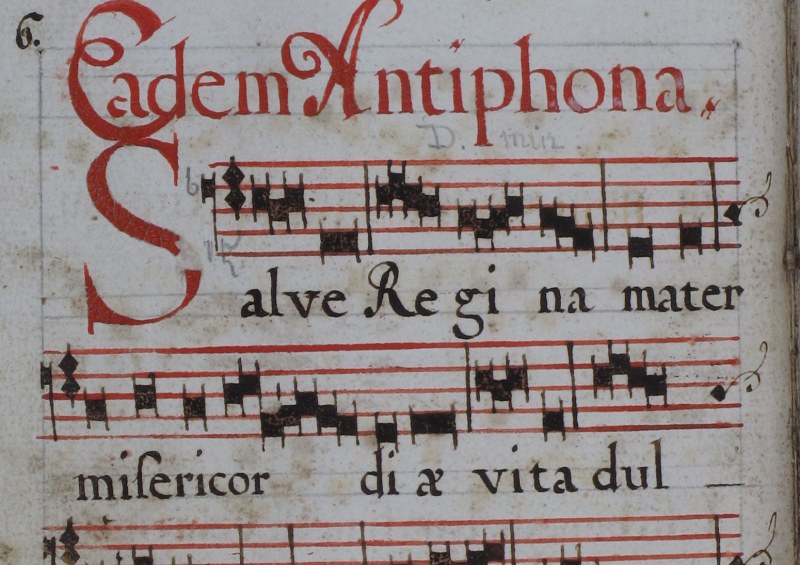 6.
Eadem Antiphona.
D. min.
Salve Regina mater
miſericordiæ vita dul